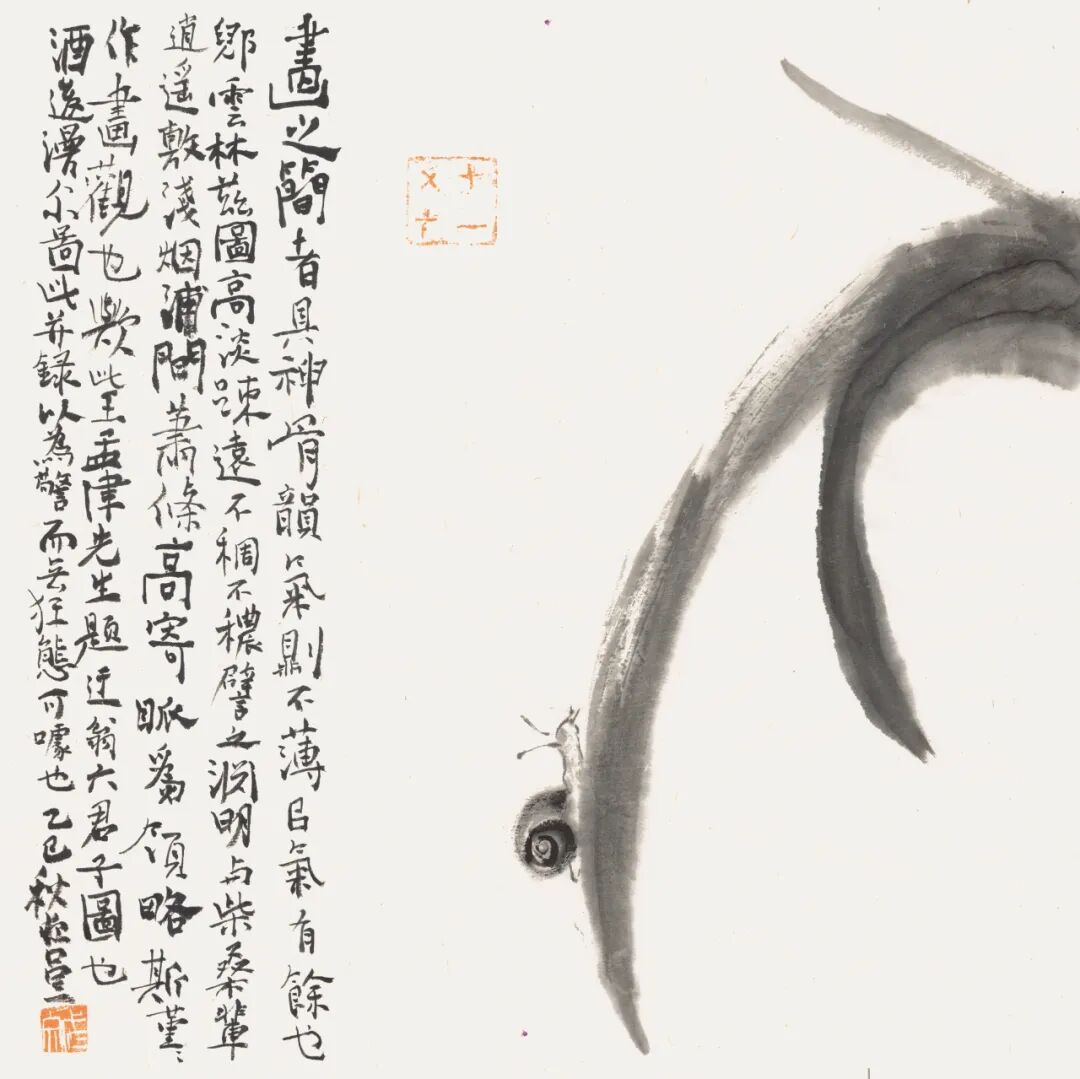 畫之簡者具神骨韻氣則不薄㠯氣有餘也
鄉雲林茲圖高淡疎遠不稠不穠譬之淵明与柴桑輩
逍遥敷淺烟浦間蕭條高寄眽爲領略斯堇〻
作畫觀也歟此王孟津先生題迂翁六君子圖也
酒邊漫尒啚此并録以為警而无狂態可噱也乙巳秋